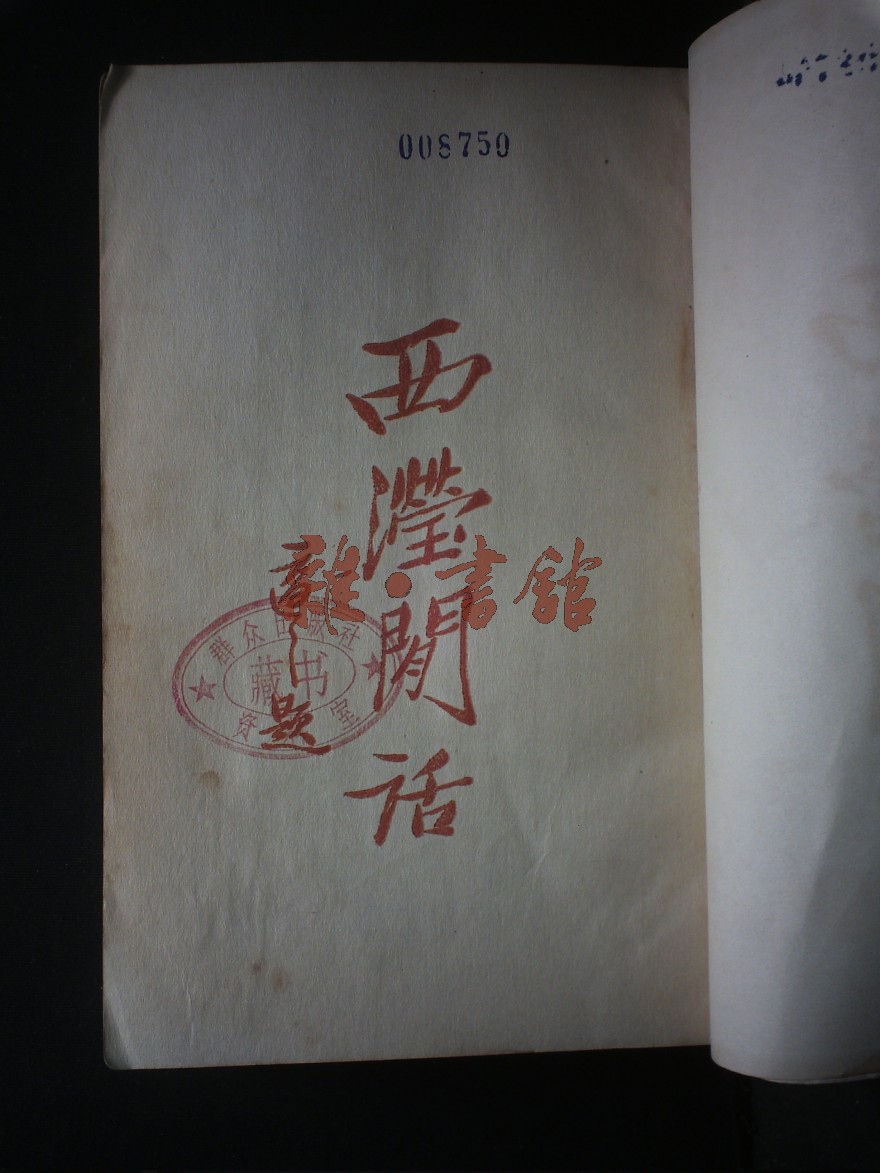 008750
西瀅閒話
題
雜·書館
群众出版社
藏书
资 室